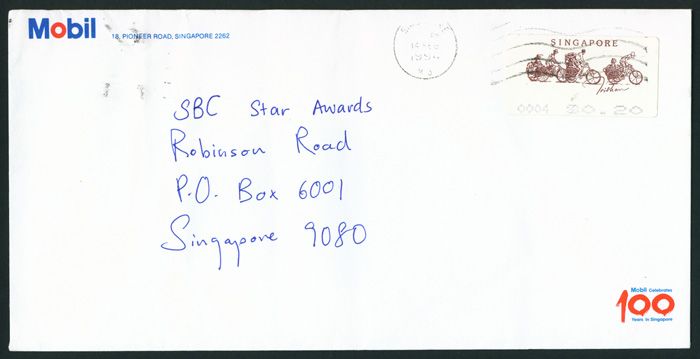 Mobil
18, PIONEER ROAD, SINGAPORE 2262
14 FEB
1994
SINGAPORE
0004 $0.20
SBC Star Awards
Robinson Road
P.O. Box 6001
Singapore 9080
Mobil Celebrates
100
Years in Singapore